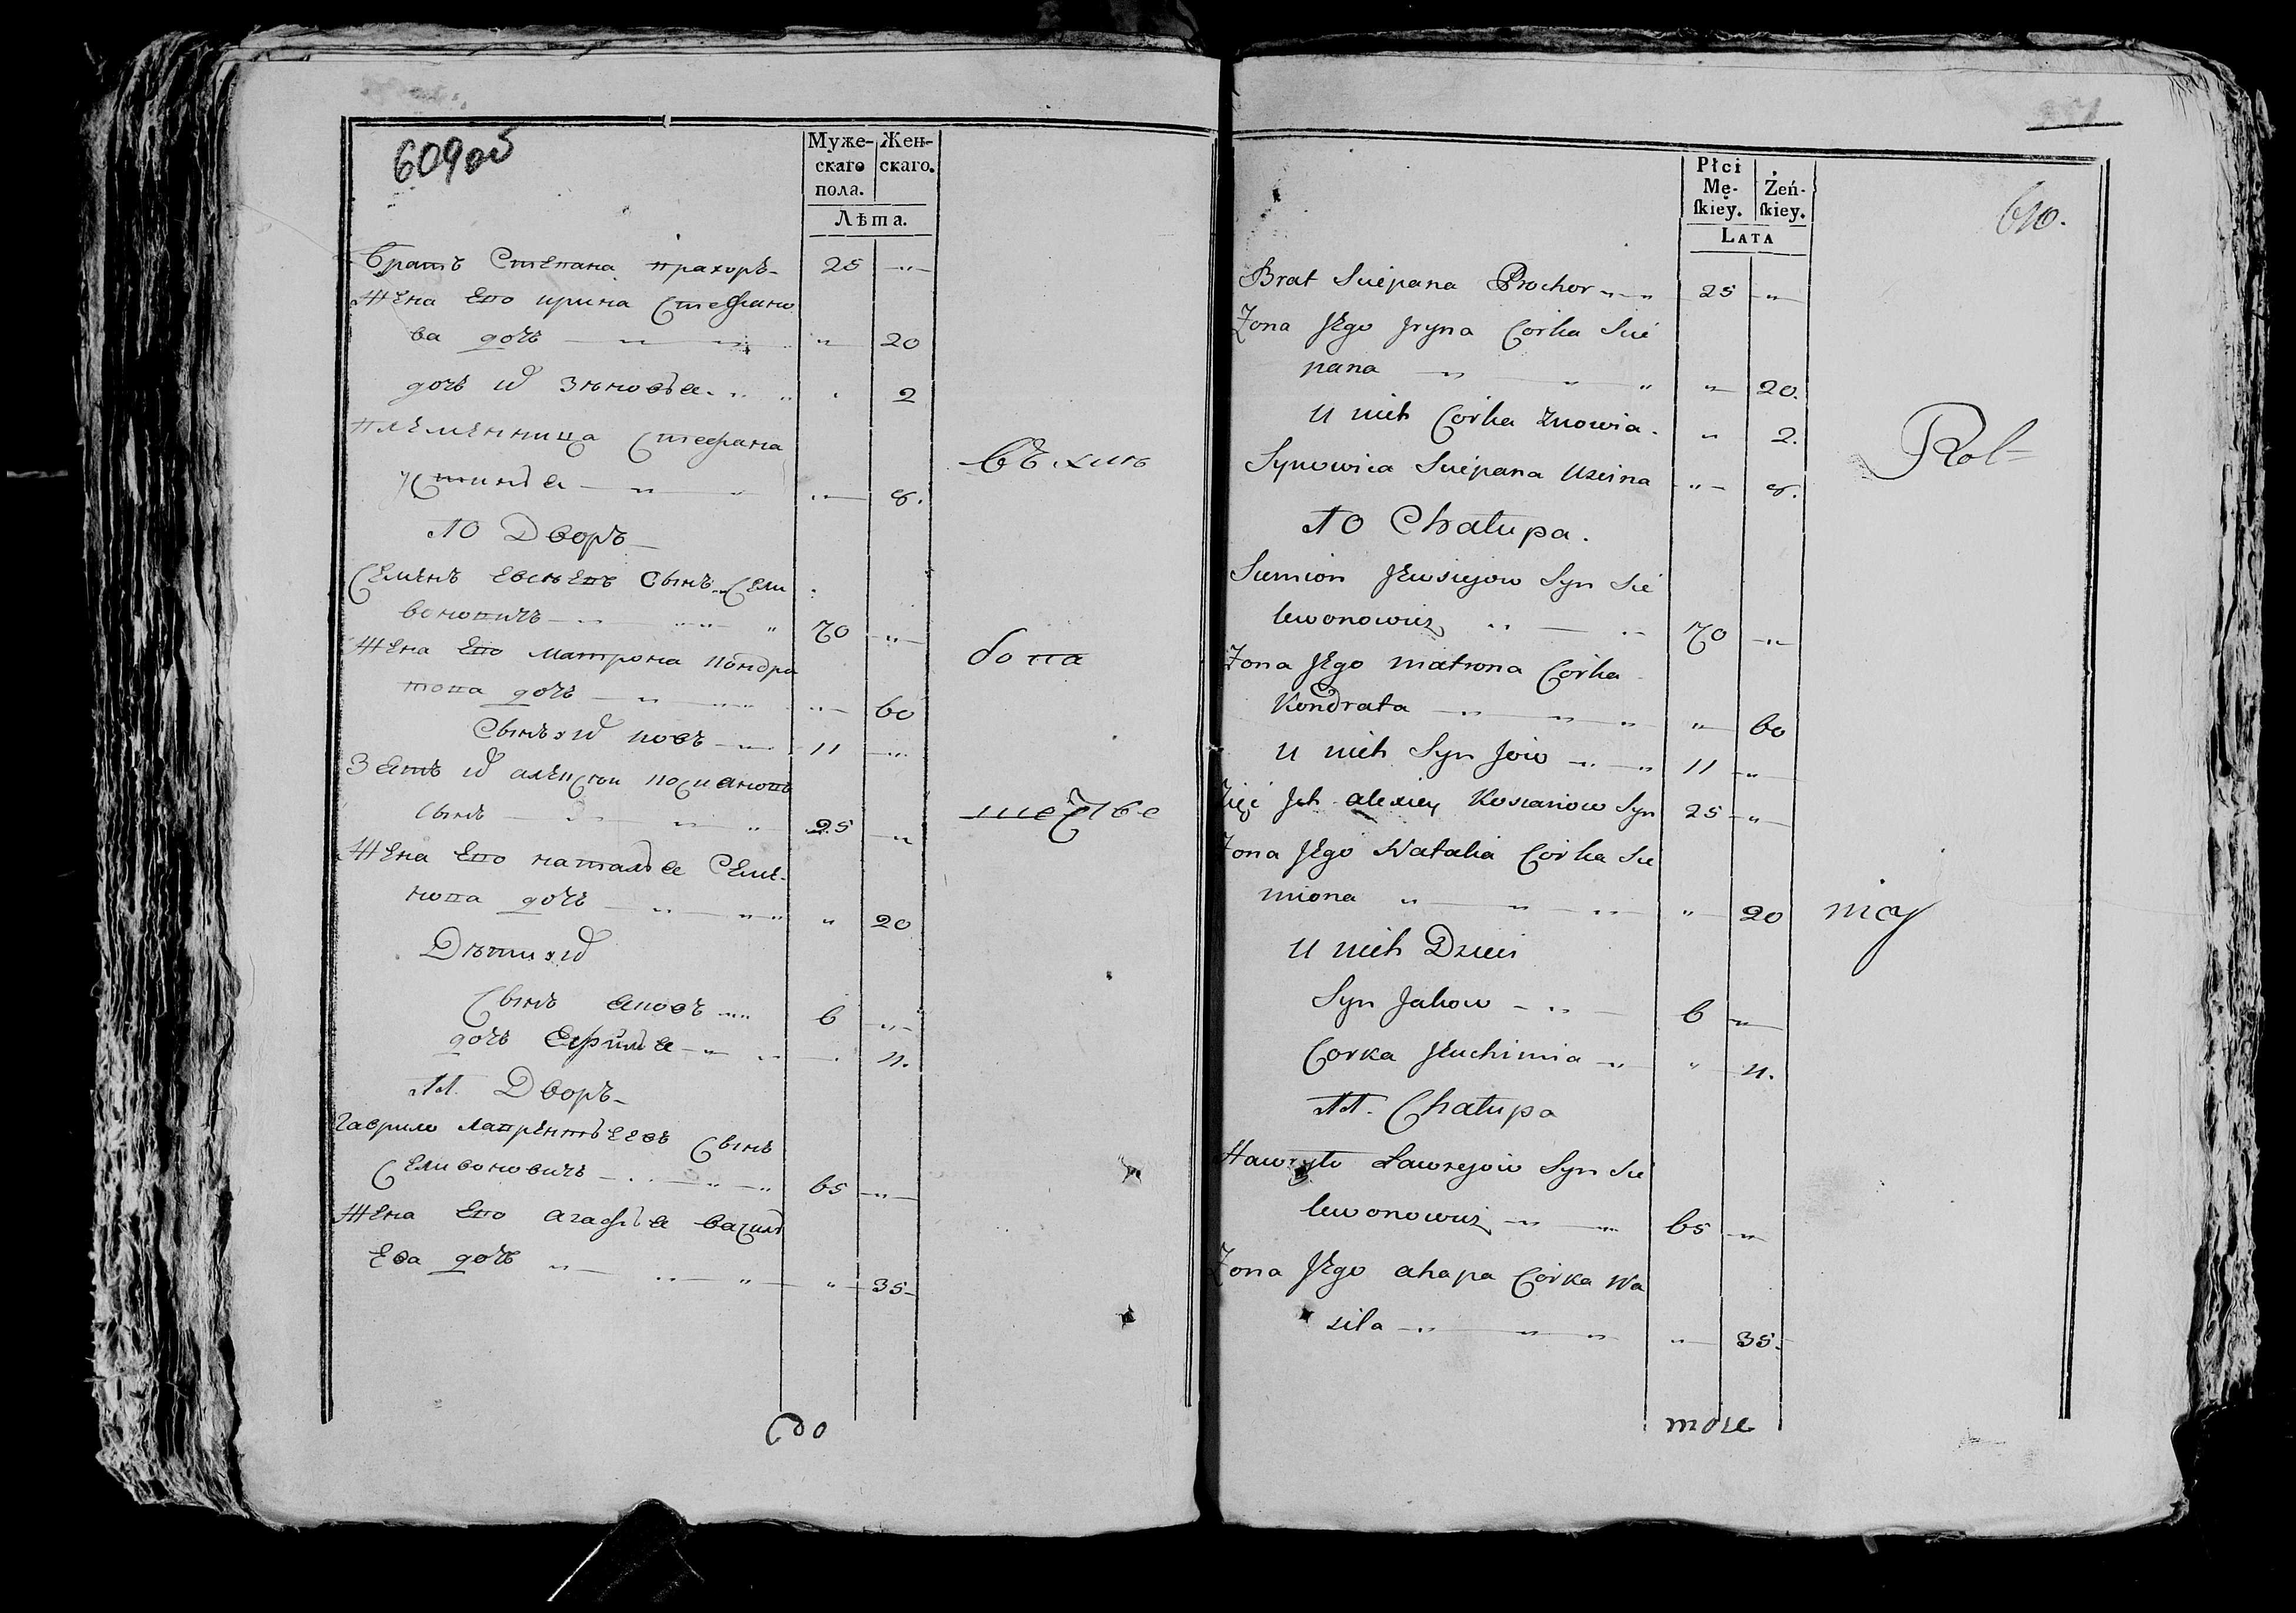 609об
Муже-
скаго
пола.
Жен-
скаго.
Лѣта.
Братъ Степана Прахоръ 25
Жена Его ирина Стефано
ва дочь 20
дочь их Зѣновья 2
племенница Стефана
устинья 8.
10 Дворъ
Семенъ Евсѣевъ Сынъ Сели
воновичъ 70
Жена Его матрона кондра
това дочь 60
Сынъ их иовъ 11
Зять их алексѣи касьяновъ
Сынъ 25
Жена Его наталья Семе-
нова дочь 20
Дѣти их
Сынъ Яковъ 6
дочь Ефимья 4.
11. Дворъ
Гаврило Лаврентьевъ Сынъ
Селивоновичъ 65
Жена Его агафья васил
Ева дочь 35
въ
Płci
Mę-
skiey.
Żeń-
skiey.
LATA
610.
Brat Sciepana Prochor 25
Zona Jego Jryna Corka Scie
pana 20.
U nich Corka Znowia 2.
Synowica Sciepana Uscina 8.
10 Chałupa.
Siemion Jewsiejow Syn Sie
lewonowicz 70
Zona Jego Matrona Corka
Kondrata 60
U nich Syn Jow 11
Zięć Jch alexiey Kosianow Syn 25
Zona Jego Natalia Corka Sie
miona 20
U nich Dzieci
Syn Jakow 6
Corka Jeuchimia 4.
11. Chałupa
Hawryło Ławrejow Syn Sie
lewonowicz 65
Zona Jego ahapa Corka Wa
sila 35